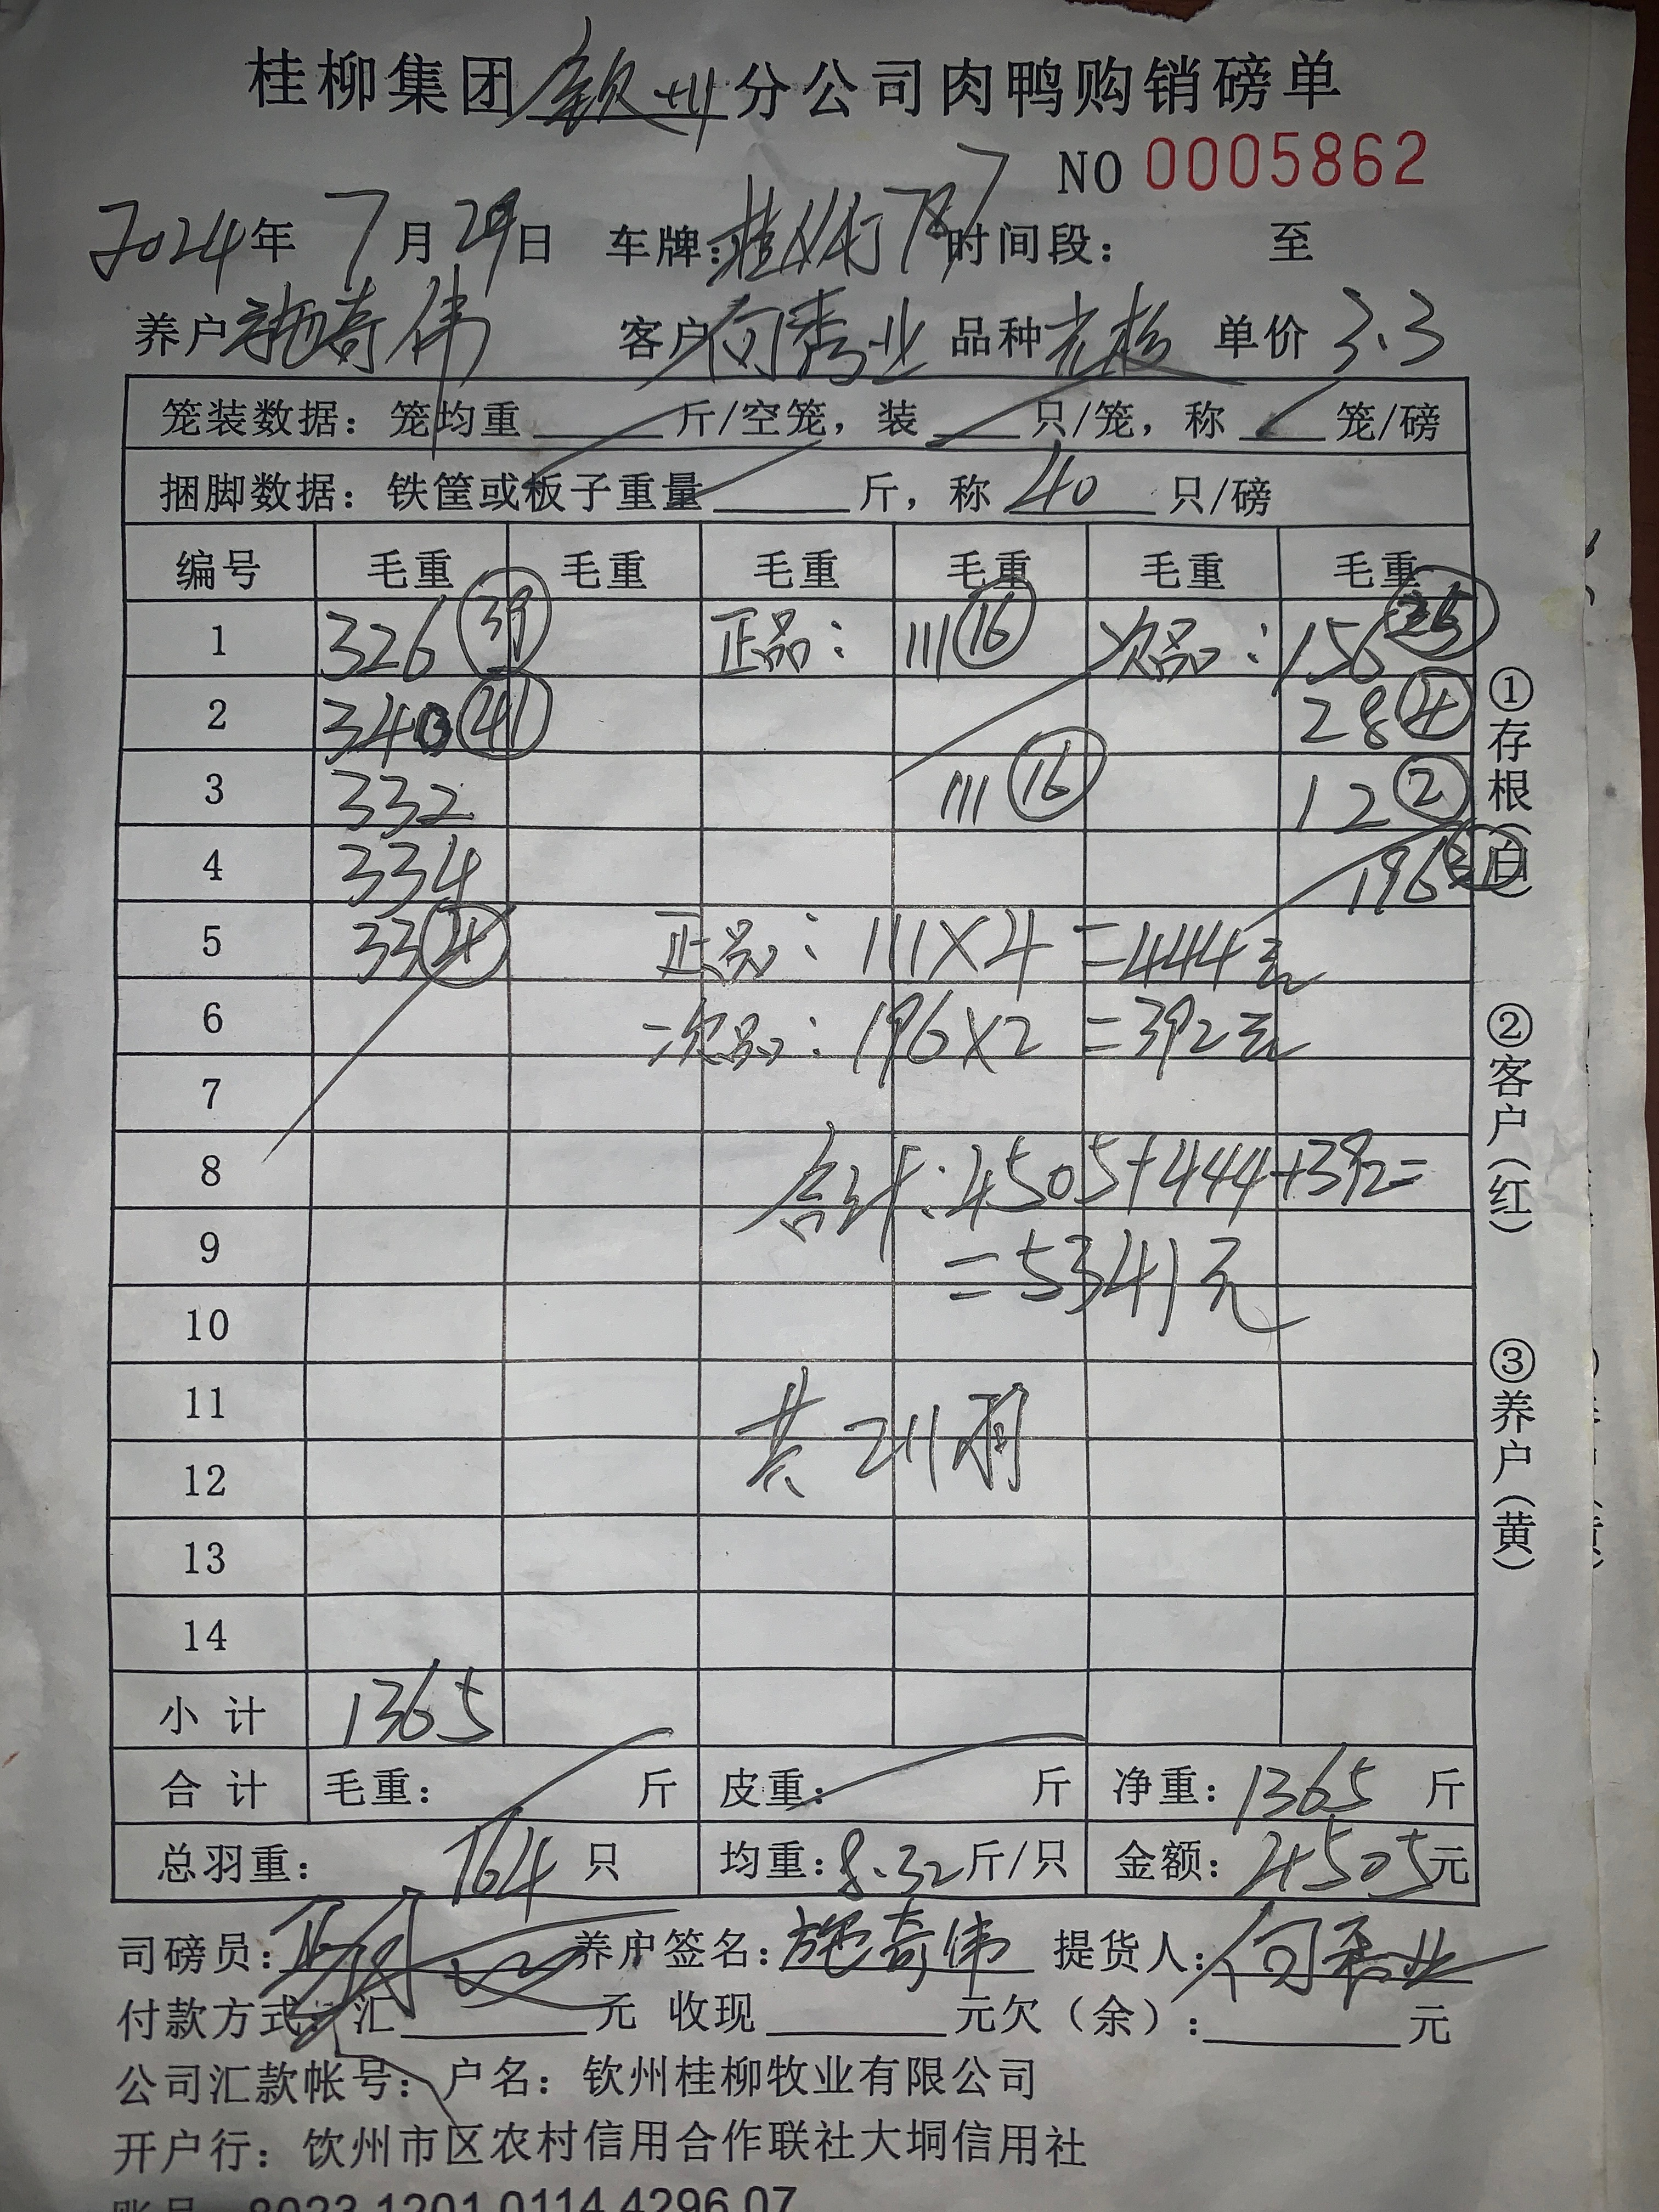 桂柳集团钦州分公司肉鸭购销磅单
NO 0005862
2024年 7月29日 车牌: 时间段: 至
养户 施奇伟 客户 何秀业 品种 单价 3.3
笼装数据: 笼均重 斤/空笼, 装 只/笼, 称 笼/磅
捆脚数据: 铁筐或板子重量 斤, 称 40 只/磅
编号 毛重 毛重 毛重 毛重 毛重 毛重
1 326 39 正品: 111 16 次品: 156 25
2 340 41 28 4
3 332 111 16 12 2
4 334 196 31
5 33 4 正品: 111×4=444元
6 次品: 196×2=392元
7
8 合计: 4505+444+392=
9 =5341元
10
11 共211羽
12
13
14
小计 1365
合计 毛重: 斤 皮重: 斤 净重: 1365 斤
总羽重: 164 只 均重: 8.32 斤/只 金额: 4505元
司磅员: 养户签名: 施奇伟 提货人: 何秀业
付款方式: 汇 元 收现 元欠(余): 元
公司汇款帐号: 户名: 钦州桂柳牧业有限公司
开户行: 钦州市区农村信用合作联社大垌信用社
账号 8023 1201 0114 4296 07
①存根(白)
②客户(红)
③养户(黄)